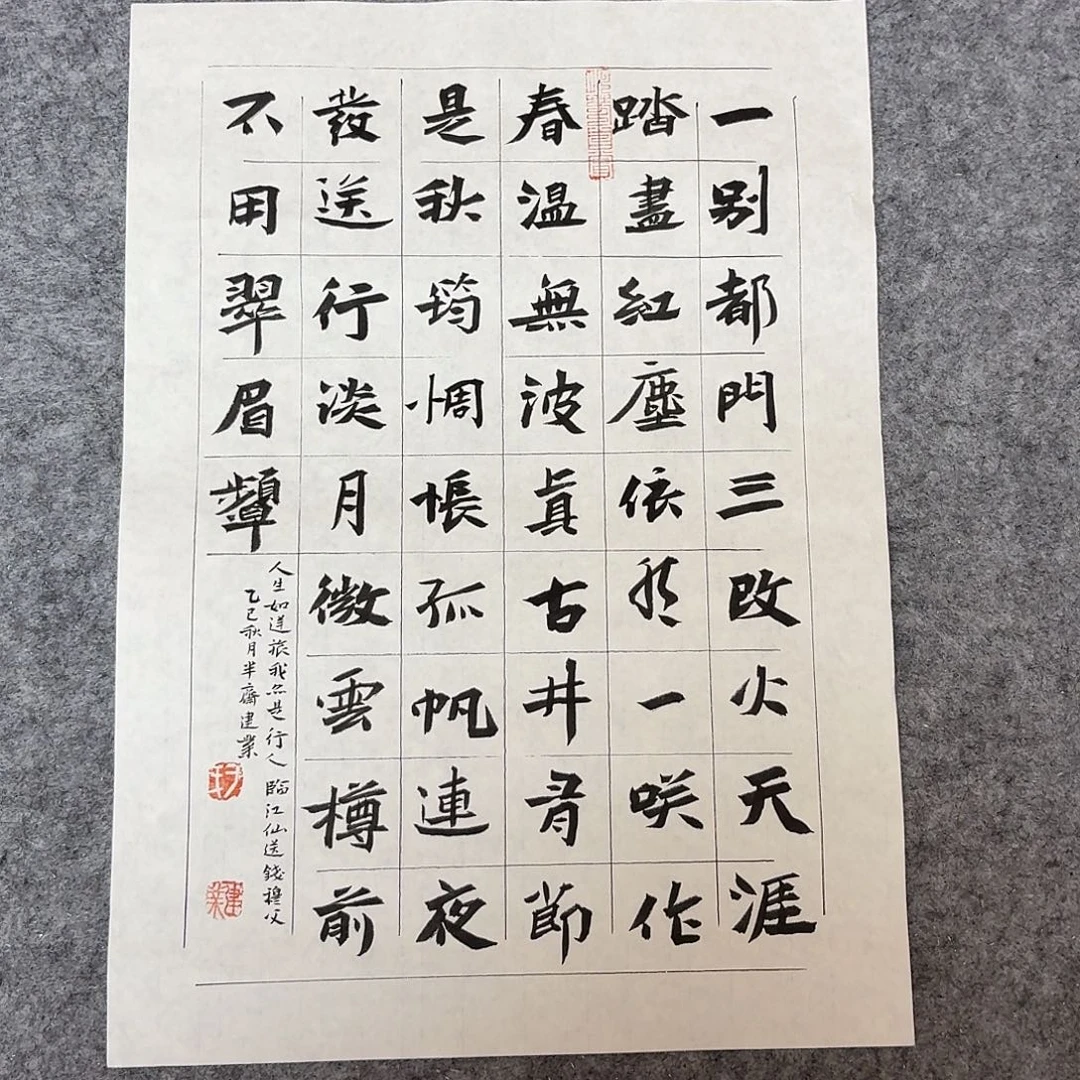 一別都門三改火天涯
踏盡紅塵依然一咲作
春溫無波眞古井有節
是秋筠惆悵孤帆連夜
發送行淡月微雲樽前
不用翠眉顰
人生如逆旅我亦是行人 臨江仙送錢穆父
乙巳秋月半齋建業
建業